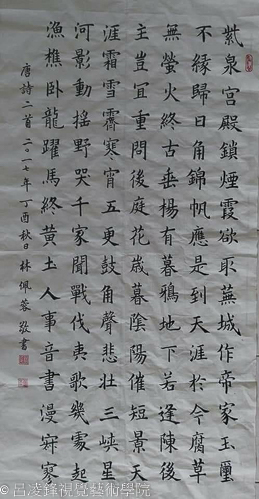 紫泉宫殿鎖煙霞欲取蕪城作帝家玉璽
不緣歸日角錦帆應是到天涯於今腐草
無螢火終古垂楊有暮鴉地下若逢陳後
主豈宜重問後庭花歲暮陰陽催短景天
涯霜雪霽寒宵五更鼓角聲悲壯三峽星
河影動搖野哭千家聞戰伐夷歌幾處起
漁樵卧龍躍馬終黃土人事音書漫寂寥
唐詩二首二〇一七年丁酉秋日林佩蓉敬書
©吕凌鋒視覺藝術學院